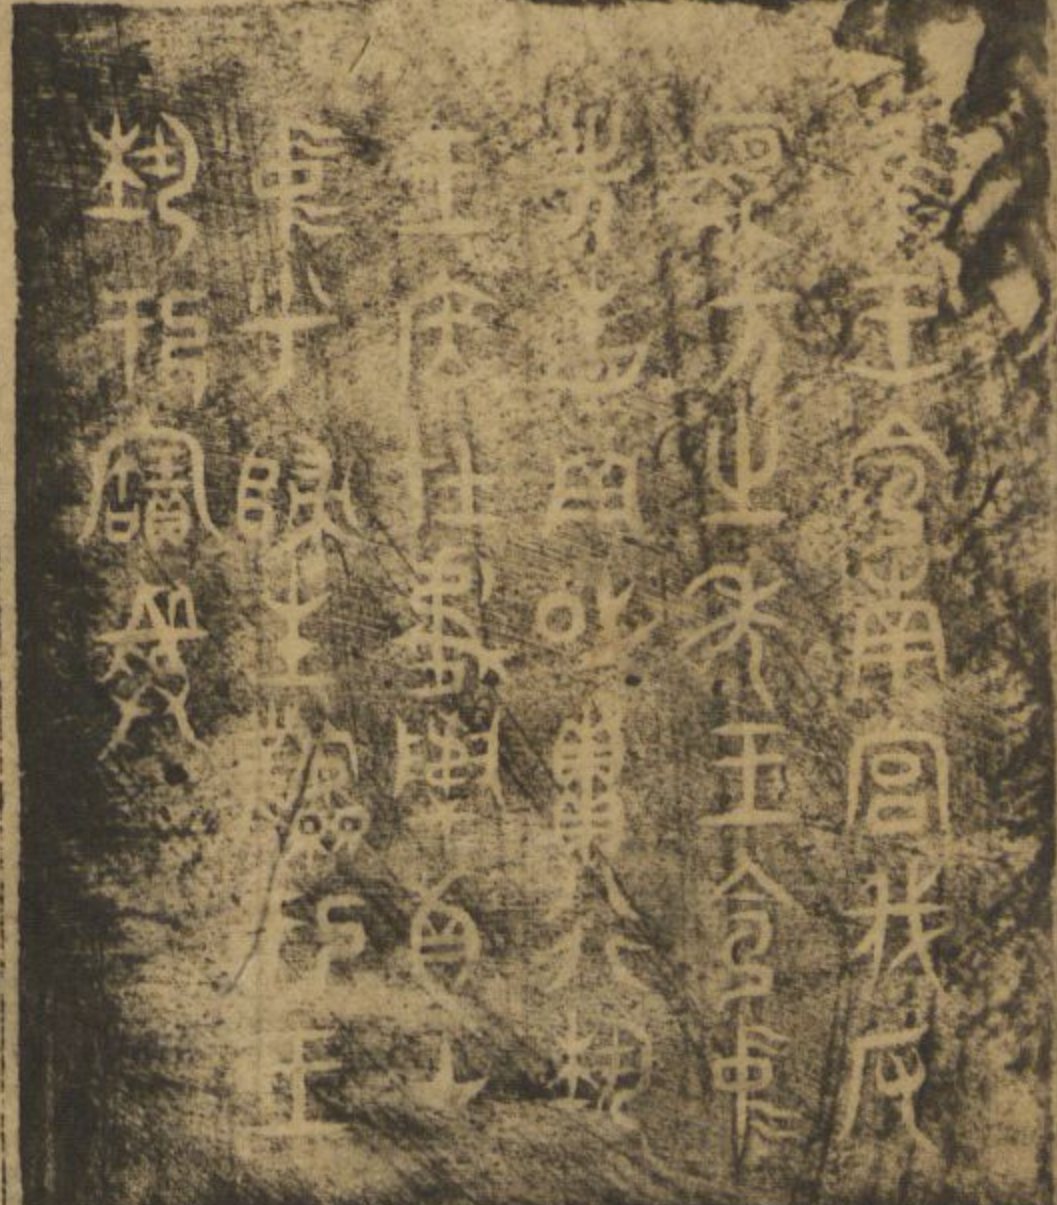 隹王令南宮伐反
虎方之年王令中
先省南或貫行埶
王应在夔真山
中乎歸生鳳于王
埶于寶彝